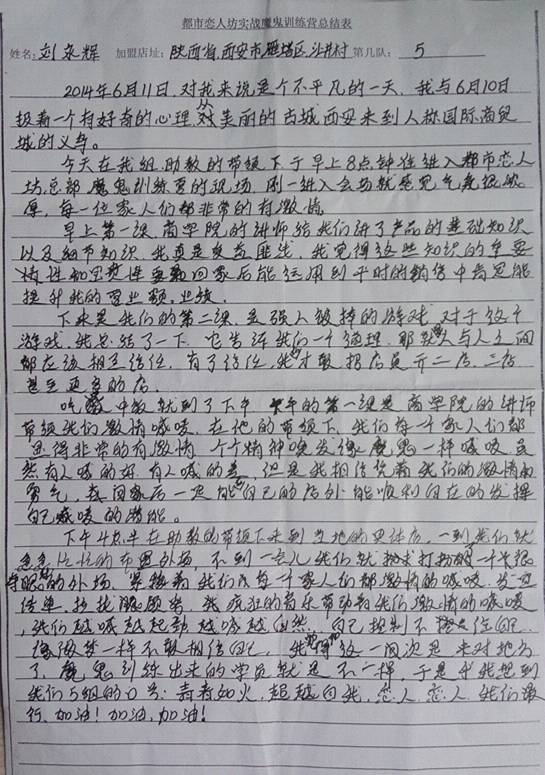 都市恋人坊实战魔鬼训练营总结表
姓名:刘永辉 加盟店址:陕西省西安市雁塔区沙井村 第几队: 5
2014年6月11日,对我来说是个不平凡的一天,我与6月10日
报着一个有好奇的心理,从美丽的古城西安来到人称国际商贸
城的义乌。
今天在我组助教的带领下于早上8点钟准进入都市恋人
坊总部魔鬼训练营的现场,刚一进入会场就感觉气氛很浓
厚,每一位家人们都非常的有激情
早上第一课,商学院的讲师给我们讲了产品的基础知识
以及细节知识,我真是受益匪浅,我觉得这些知识的重要
性 回家后能运用到平时的销售中肯定能
提升我的营业额。业绩。
下来是我们的第二课,是强人毁掉的游戏,对于这个
游戏,我总结了一下,它告诉我们一个道理,那就是人与人之间
都应该相互信任,有了信任,我才敢招店员开二店、三店
甚至更多的店。
吃中饭就到了下午 的第一课是商学院的讲师
带领我们激情喊唛,在他的带领下,我们每一个家人们都
显得非常的有激情,个个精神焕发像魔鬼一样喊唛,虽
然有人喊的好,有人喊的差,但是我相信凭着我们的激情和
勇气,我回家后一定能在自己的店外能顺利自在的发挥
自己喊唛的潜能。
下午4点半在助教的带领下来到当地的实体店,一到我们就
急急忙忙的布置外场,不到一会儿我们就 打扮成一个很
夺眼的外场,紧接着我们每一个家人们都激情的喊唛,发
传单,拉拢顾客,我疯狂的音乐带动和我们激情的喊唛
,我们越喊越起劲,越喊越自然,自己控制不住自己
像做梦一样不敢相信自己,我觉得这一回次是来对地方
了,魔鬼训练出来的学员就是不一样,于是我想到
我们5组的口号:青春如火,超越自我,恋人,恋人,我们最
行,加油!加油,加油!